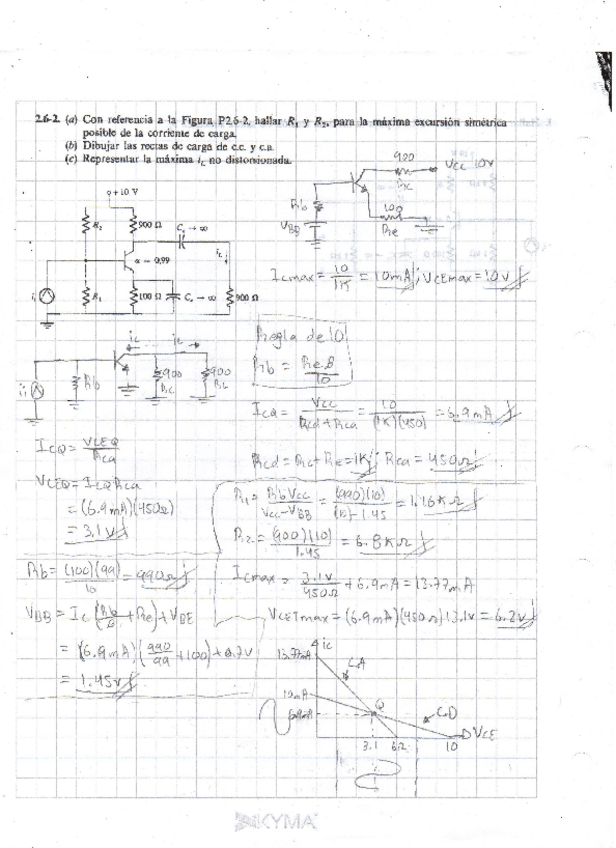 2.6-2. (a) Con referencia a la Figura P2.6-2, hallar R₁ y R₂, para la máxima excursión simétrica
posible de la corriente de carga.
(b) Dibujar las rectas de carga de c.c. y c.a.
(c) Representar la máxima i_L no distorsionada.
900
Rc
Vcc 10v
Rb
VBB
100
Re
+10 V
R₂
900 Ω
C꜀ → ∞
i_L
α = 0,99
R₁
100 Ω
Cₑ → ∞
900 Ω
Icmax = 10/1K = 10mA; VCEmax = 10v
iL
Rb
900
Rc
900
RL
Regla de 10
Rb = Re.β/10
ICQ = Vcc/(Rcd+Rca) = 10/(1K)(450) = 6.9mA
ICQ = VCEQ/Rca
Rcd = Rc+Re = 1K; Rca = 450Ω
VCEQ = ICQ Rca
= (6.9mA)(450Ω)
= 3.1v
R1 = Rb Vcc/(Vcc-VBB) = (990)(10)/(10-1.45) = 1.16KΩ
R2 = (990)(10)/1.45 = 6.8KΩ
Rb = (100)(99)/10 = 990Ω
Icmax = 3.1v/450Ω + 6.9mA = 13.77mA
VBB = Ic (Rb/β + Re) + VBE
VCEmax = (6.9mA)(450Ω)+3.1v = 6.2v
= (6.9mA)(990/99 + 100) + 0.7v
= 1.45v
ic
13.77mA
C.A
10mA
Q
C.D
VCE
3.1
6.2
10
KYMA